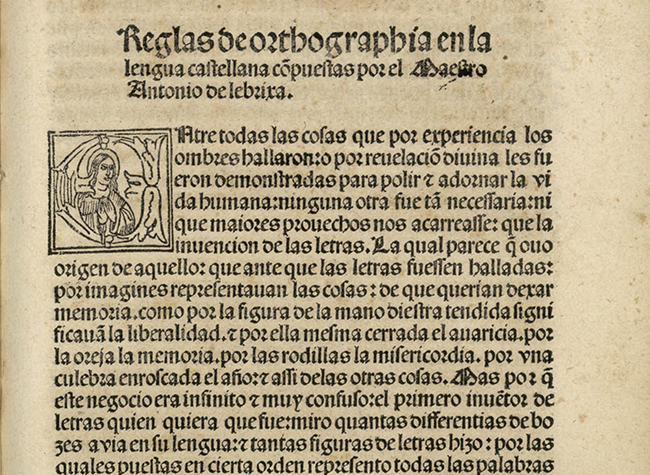 Reglas de orthographia en la
lengua castellana cõpuestas por el Maestro
Antonio de lebrixa.
ENtre todas las cosas que por experiencia los
ombres hallaron: o por reuelaciõ diuina les fu
eron demonstradas para polir ⁊ adornar la vi
da humana: ninguna otra fue tã necessaria: ni
que maiores prouechos nos acarreasse: que la
inuencion de las letras. La qual parece q̃ ouo
origen de aquello: que ante que las letras fuessen halladas:
por imagines representauan las cosas: de que querian dexar
memoria. como por la figura de la mano diestra tendida signi
ficauã la liberalidad. ⁊ por ella mesma cerrada el auaricia. por
la oreja la memoria. por las rodillas la misericordia. por vna
culebra enroscada el año: ⁊ assi delas otras cosas. Mas por q̃
este negocio era infinito ⁊ muy confuso: el primero inuẽtor de
letras quien quiera que fue: miro quantas differentias de bo
zes avia en su lengua: ⁊ tantas figuras de letras hizo: por las
quales puestas en cierta orden represento todas las palabras